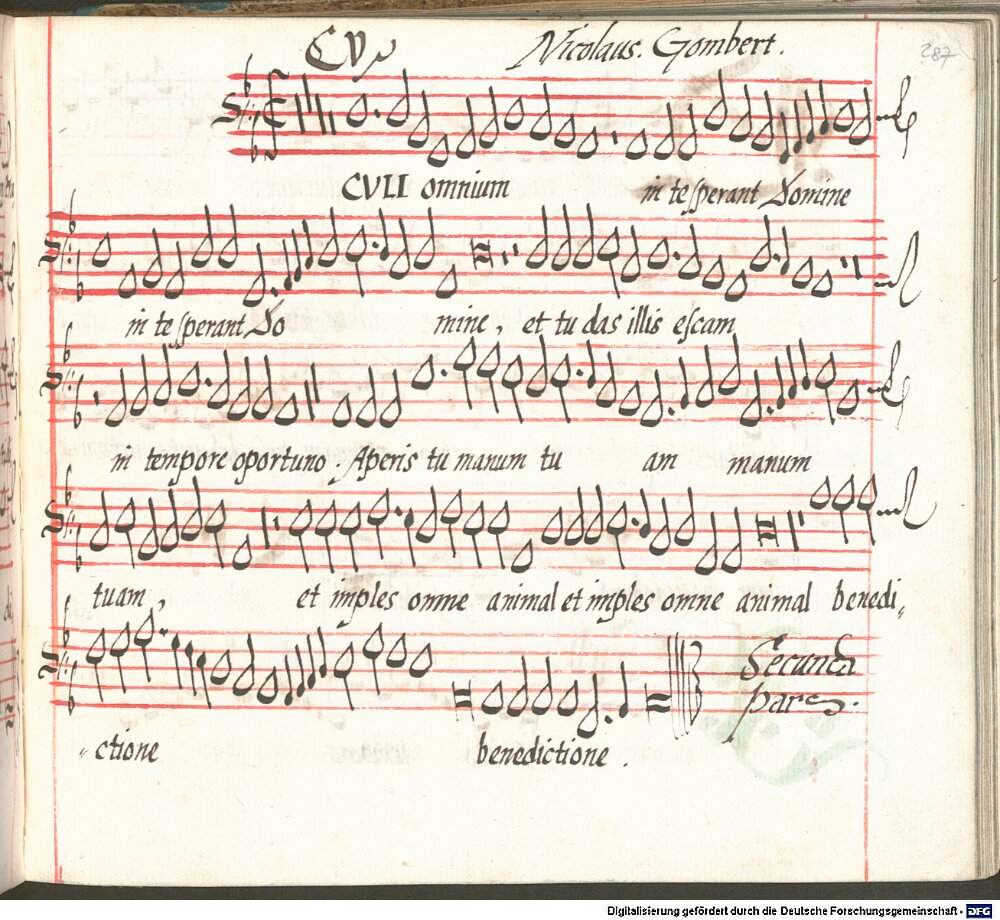 CV. Nicolaus. Gombert. 287
CVLI omnium in te sperant Domine
in te sperant Do mine, et tu das illis escam
in tempore oportuno. Aperis tu manum tu am manum
tuam, et imples omne animal et imples omne animal benedi„
Secunda
pars.
„ctione benedictione.
Digitalisierung gefördert durch die Deutsche Forschungsgemeinschaft - DFG